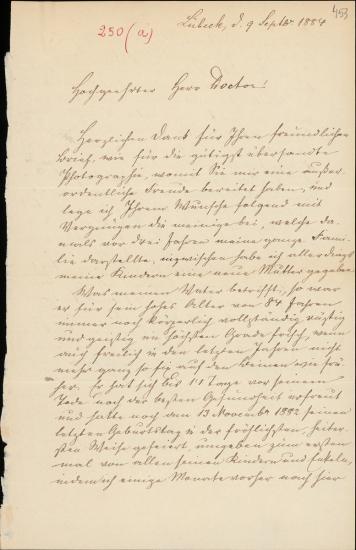 453
250 (a)
Lübeck, d. 9 Septbr 1884
Hochgeehrter Herr Doctor!
Herzlichen Dank für Ihren freundlichen
Brief, wie für die gütigst übersandte
Photographie, womit Sie mir eine außer-
ordentliche Freude bereitet haben, und
lege ich, Ihrem Wunsche folgend mit
Vergnügen die meinige bei, welche da-
mals vor drei Jahren meine ganze Fami-
lie darstellte, inzwischen habe ich allerdings
meinen Kindern eine neue Mutter gegeben.
Was meinen Vater betrifft, so war
er für sein hohes Alter von 84 Jahren
immer noch körperlich vollständig rüstig
und geistig im höchsten Grade frisch, wenn
auch freilich in den letzten Jahren nicht
mehr ganz so fix auf den Beinen wie frü-
her. Er hat sich bis 14 Tage vor seinem
Tode noch der besten Gesundheit erfreut
und hatte noch am 13 Novembr 1882 seinen
letzten Geburtstag in der fröhlichsten, heiter-
sten Weise gefeiert, umgeben zum ersten
mal von allen seinen Kindern und Enkeln,
indem ich einige Monate vorher nach hier